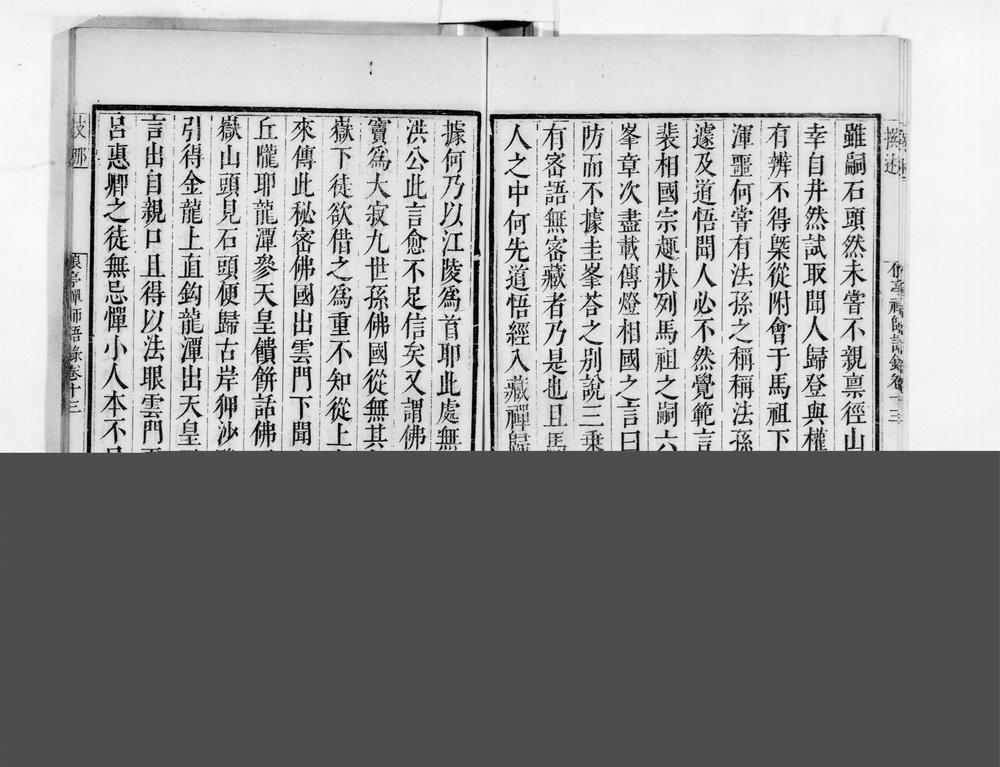 雖嗣石頭然未甞不親禀徑山
幸自井然試取聞人歸登與權
有辨不得槩從附會于馬祖下
渾噩何甞有法孫之稱稱法孫
遽及道悟聞人必不然覺範言
裴相國宗趣狀列馬祖之嗣六
峯章次盡載傳燈相國之言曰
防而不據圭峯荅之别說三乗
有密語無密藏者乃是也且馬
人之中何先道悟經入藏禪歸
據何乃以江陵爲首耶此處無
洪公此言愈不足信矣又謂佛
寶爲大寂九世孫佛國從無其
嶽下徒欲借之爲重不知從上
來傳此秘密佛國出雲門下聞
丘隴耶龍潭參天皇饋餅話佛
嶽山頭見石頭便歸古岸狎沙
引得金龍上直鈎龍潭出天皇
言出自親口且得以法眼雲門
呂惠卿之徒無忌憚小人本不
俍亭禪師語錄卷十三